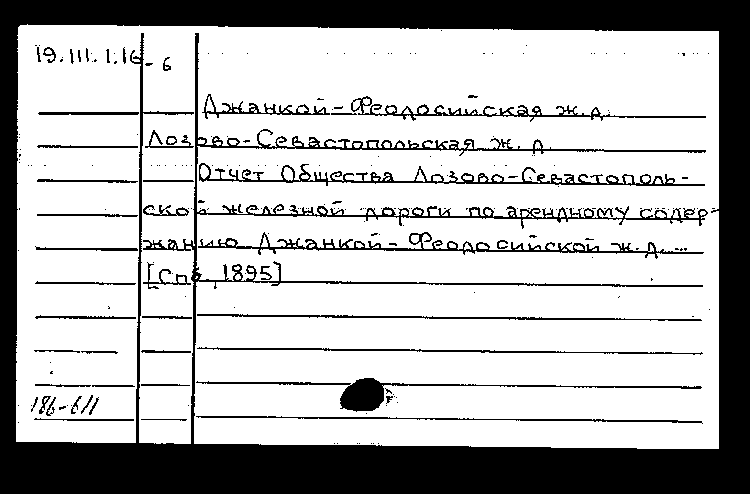 19.III.1.16-6
Джанкой-Феодосийская ж.д.
Лозово-Севастопольская ж. д.
Отчет Общества Лозово-Севастополь-
ской железной дороги по арендному содер-
жанию Джанкой-Феодосийской ж.д. ...
[Спб., 1895]
186-611